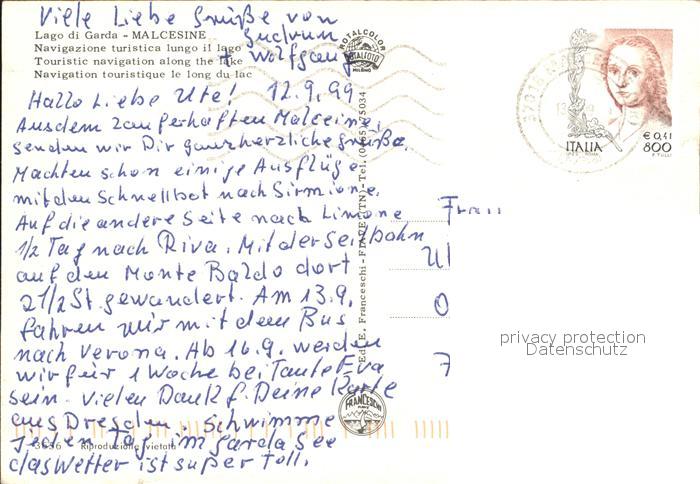 Viele Liebe Grüße von
Gudrun
+ Wolfgang
Lago di Garda - MALCESINE
Navigazione turistica lungo il lago
Touristic navigation along the lake
Navigation touristique le long du lac
ROTALCOLOR
ROTALFOTO
MILANO
Hallo Liebe Ute! 12.9.99
Aus dem zauberhaften Malceine,
senden wir Dir ganz herzliche Grüße.
Machten schon einige Ausflüge
mit den Schnellbot nach Sirmione.
Auf die andere Seite nach Limone
1/2 Tag nach Riva. Mit der Seilbahn
auf den Monte Baldo dort
2 1/2 St. gewandert. Am 13.9.
fahren wir mit dem Bus
nach Verona. Ab 16.9. werden
wir für 1 Woche bei Tante Eva
sein. Vielen Dank f. Deine Karte
aus Dresden. Schwimme
jeden Tag im Gardasee
das Wetter ist super toll.
3656 - Riproduzione vietata
Ediz. E. Franceschi - FIAVÈ (TN) - Tel. (0465) 75034
FRANCESCHI
ITALIA
€ 0,41
800
Frau
Ul
O
7
privacy protection
Datenschutz